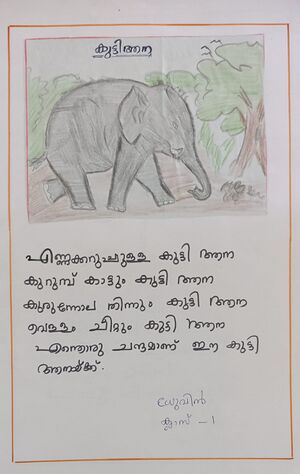 കുട്ടിആന
എണ്ണക്കറുപ്പുള്ള കുട്ടി ആന
കുറുമ്പ് കാട്ടും കുട്ടി ആന
കുരുന്നോല തിന്നും കുട്ടി ആന
വെള്ളം ചീറ്റും കുട്ടി ആന
എന്തൊരു ചന്തമാണ് ഈ കുട്ടി
ആനയ്ക്ക്.
ധ്രുവിൻ
ക്ലാസ് - 1